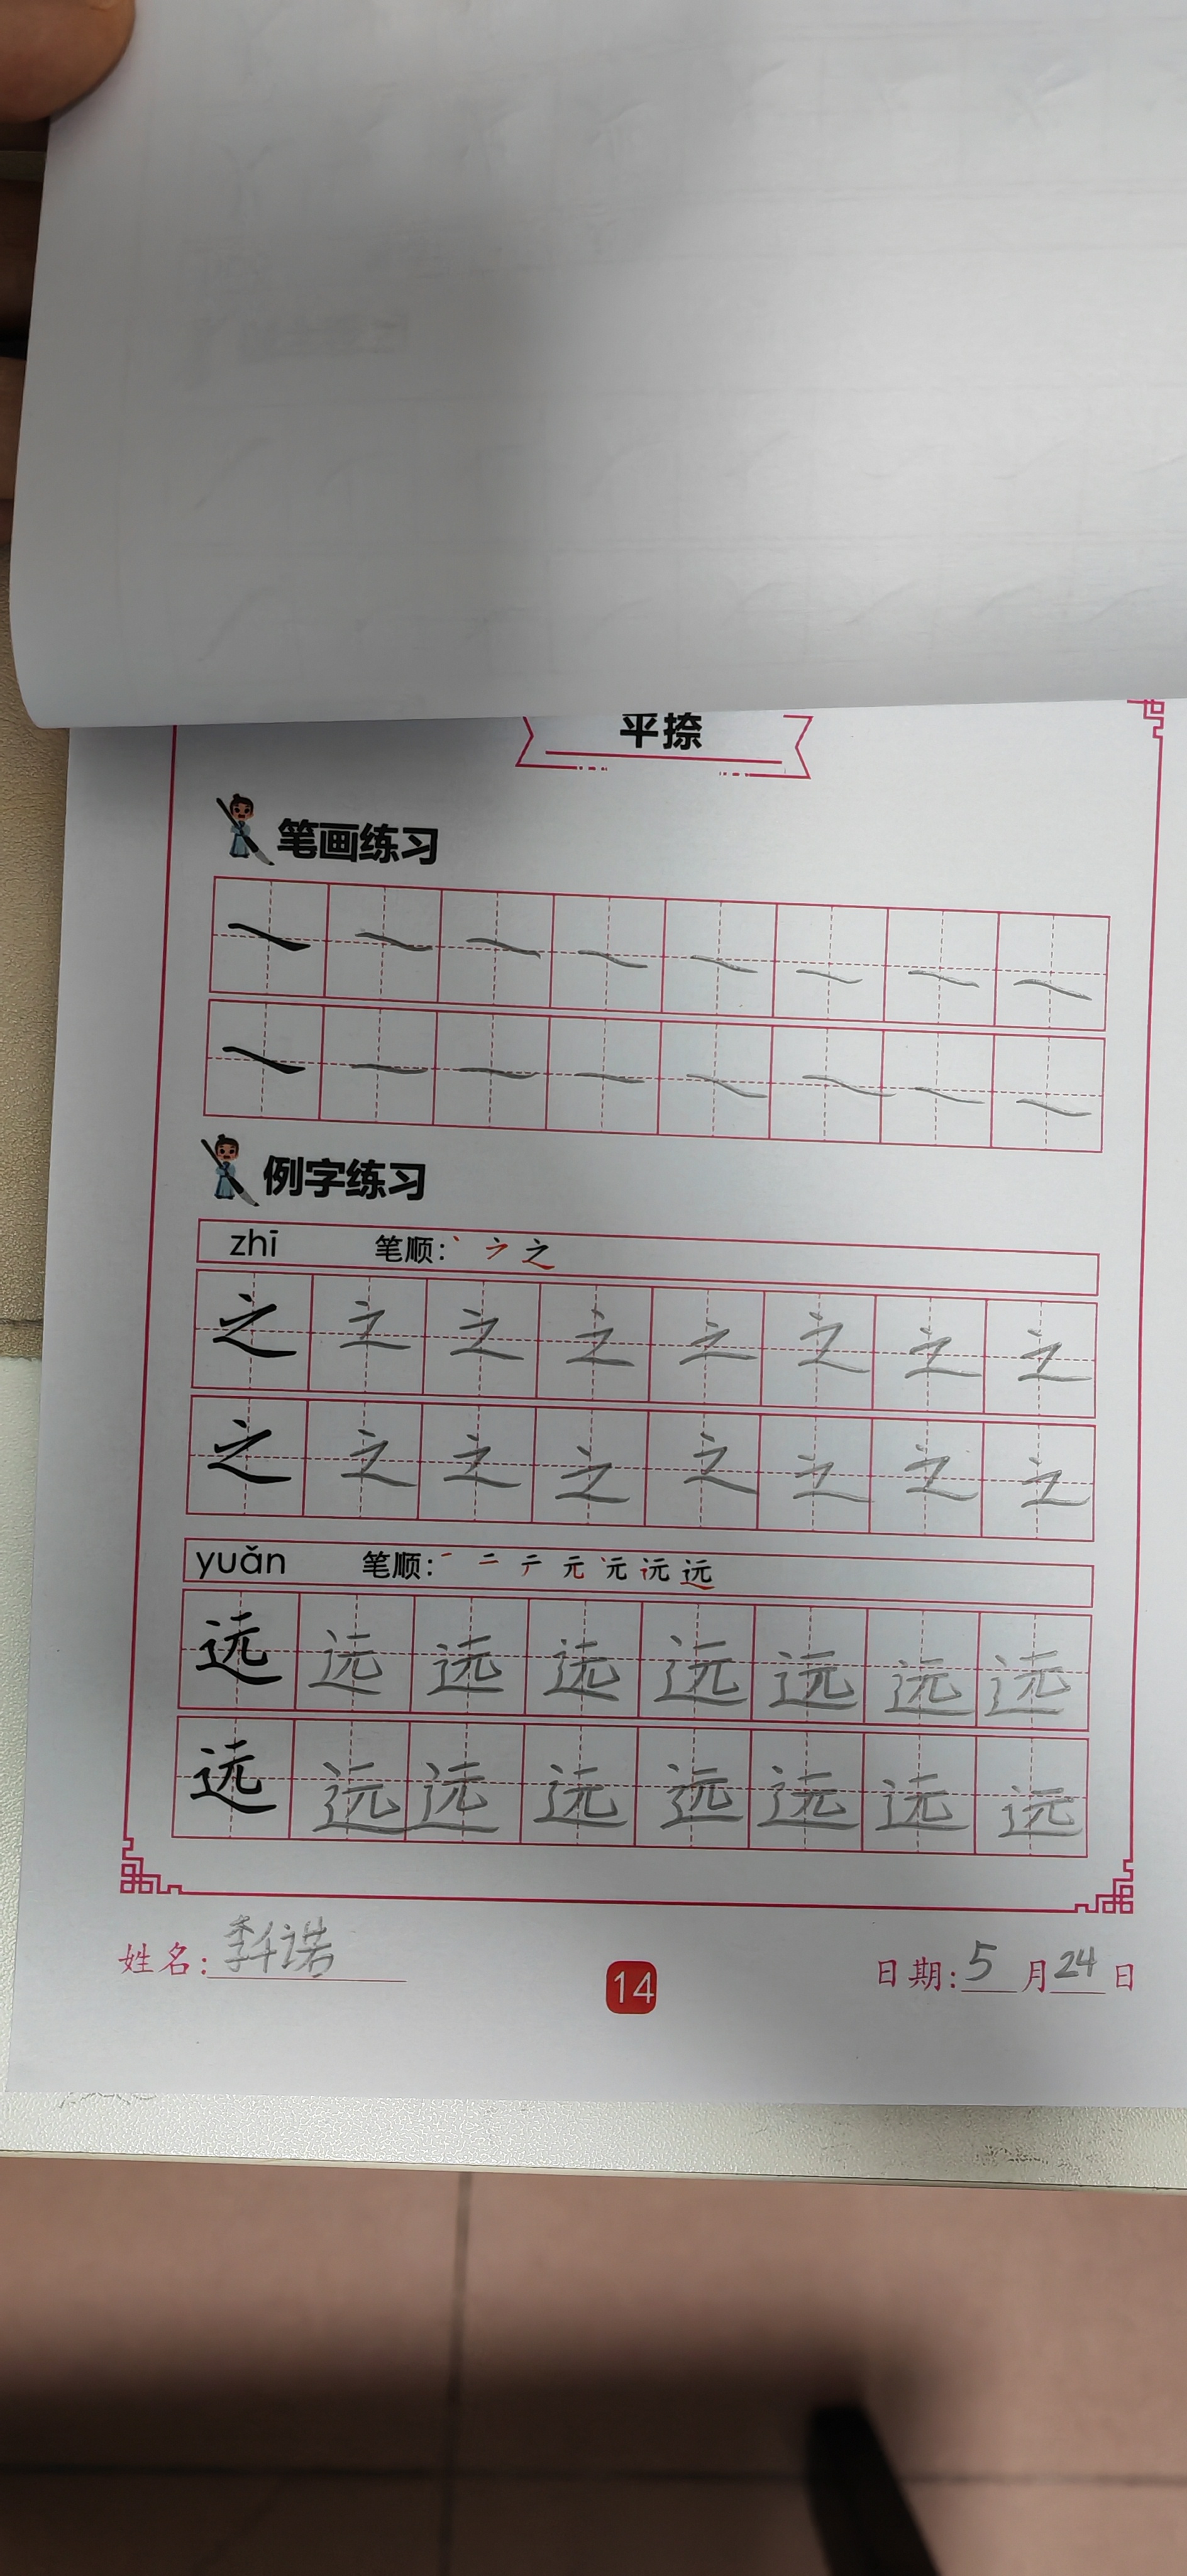 平捺
笔画练习
例字练习
zhī 笔顺:
之 之 之 之 之 之 之 之
之 之 之 之 之 之 之 之
yuǎn 笔顺: 一 二 テ 元 远
远 远 远 远 远 远 远 远
远 远 远 远 远 远 远 远
姓名: 李千诺
14
日期: 5 月 24 日